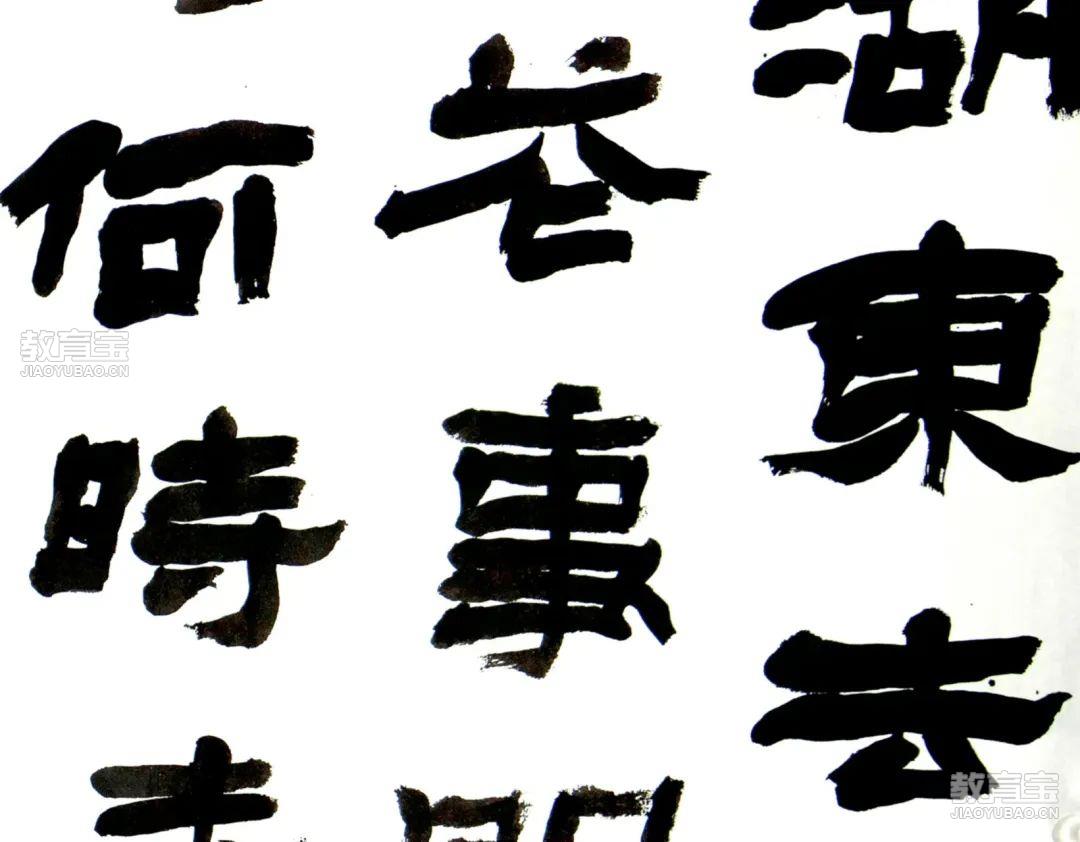 湖東去
花事
何時
教育宝
JIAOYUBAO.CN
教育宝
JIAOYUBAO.CN